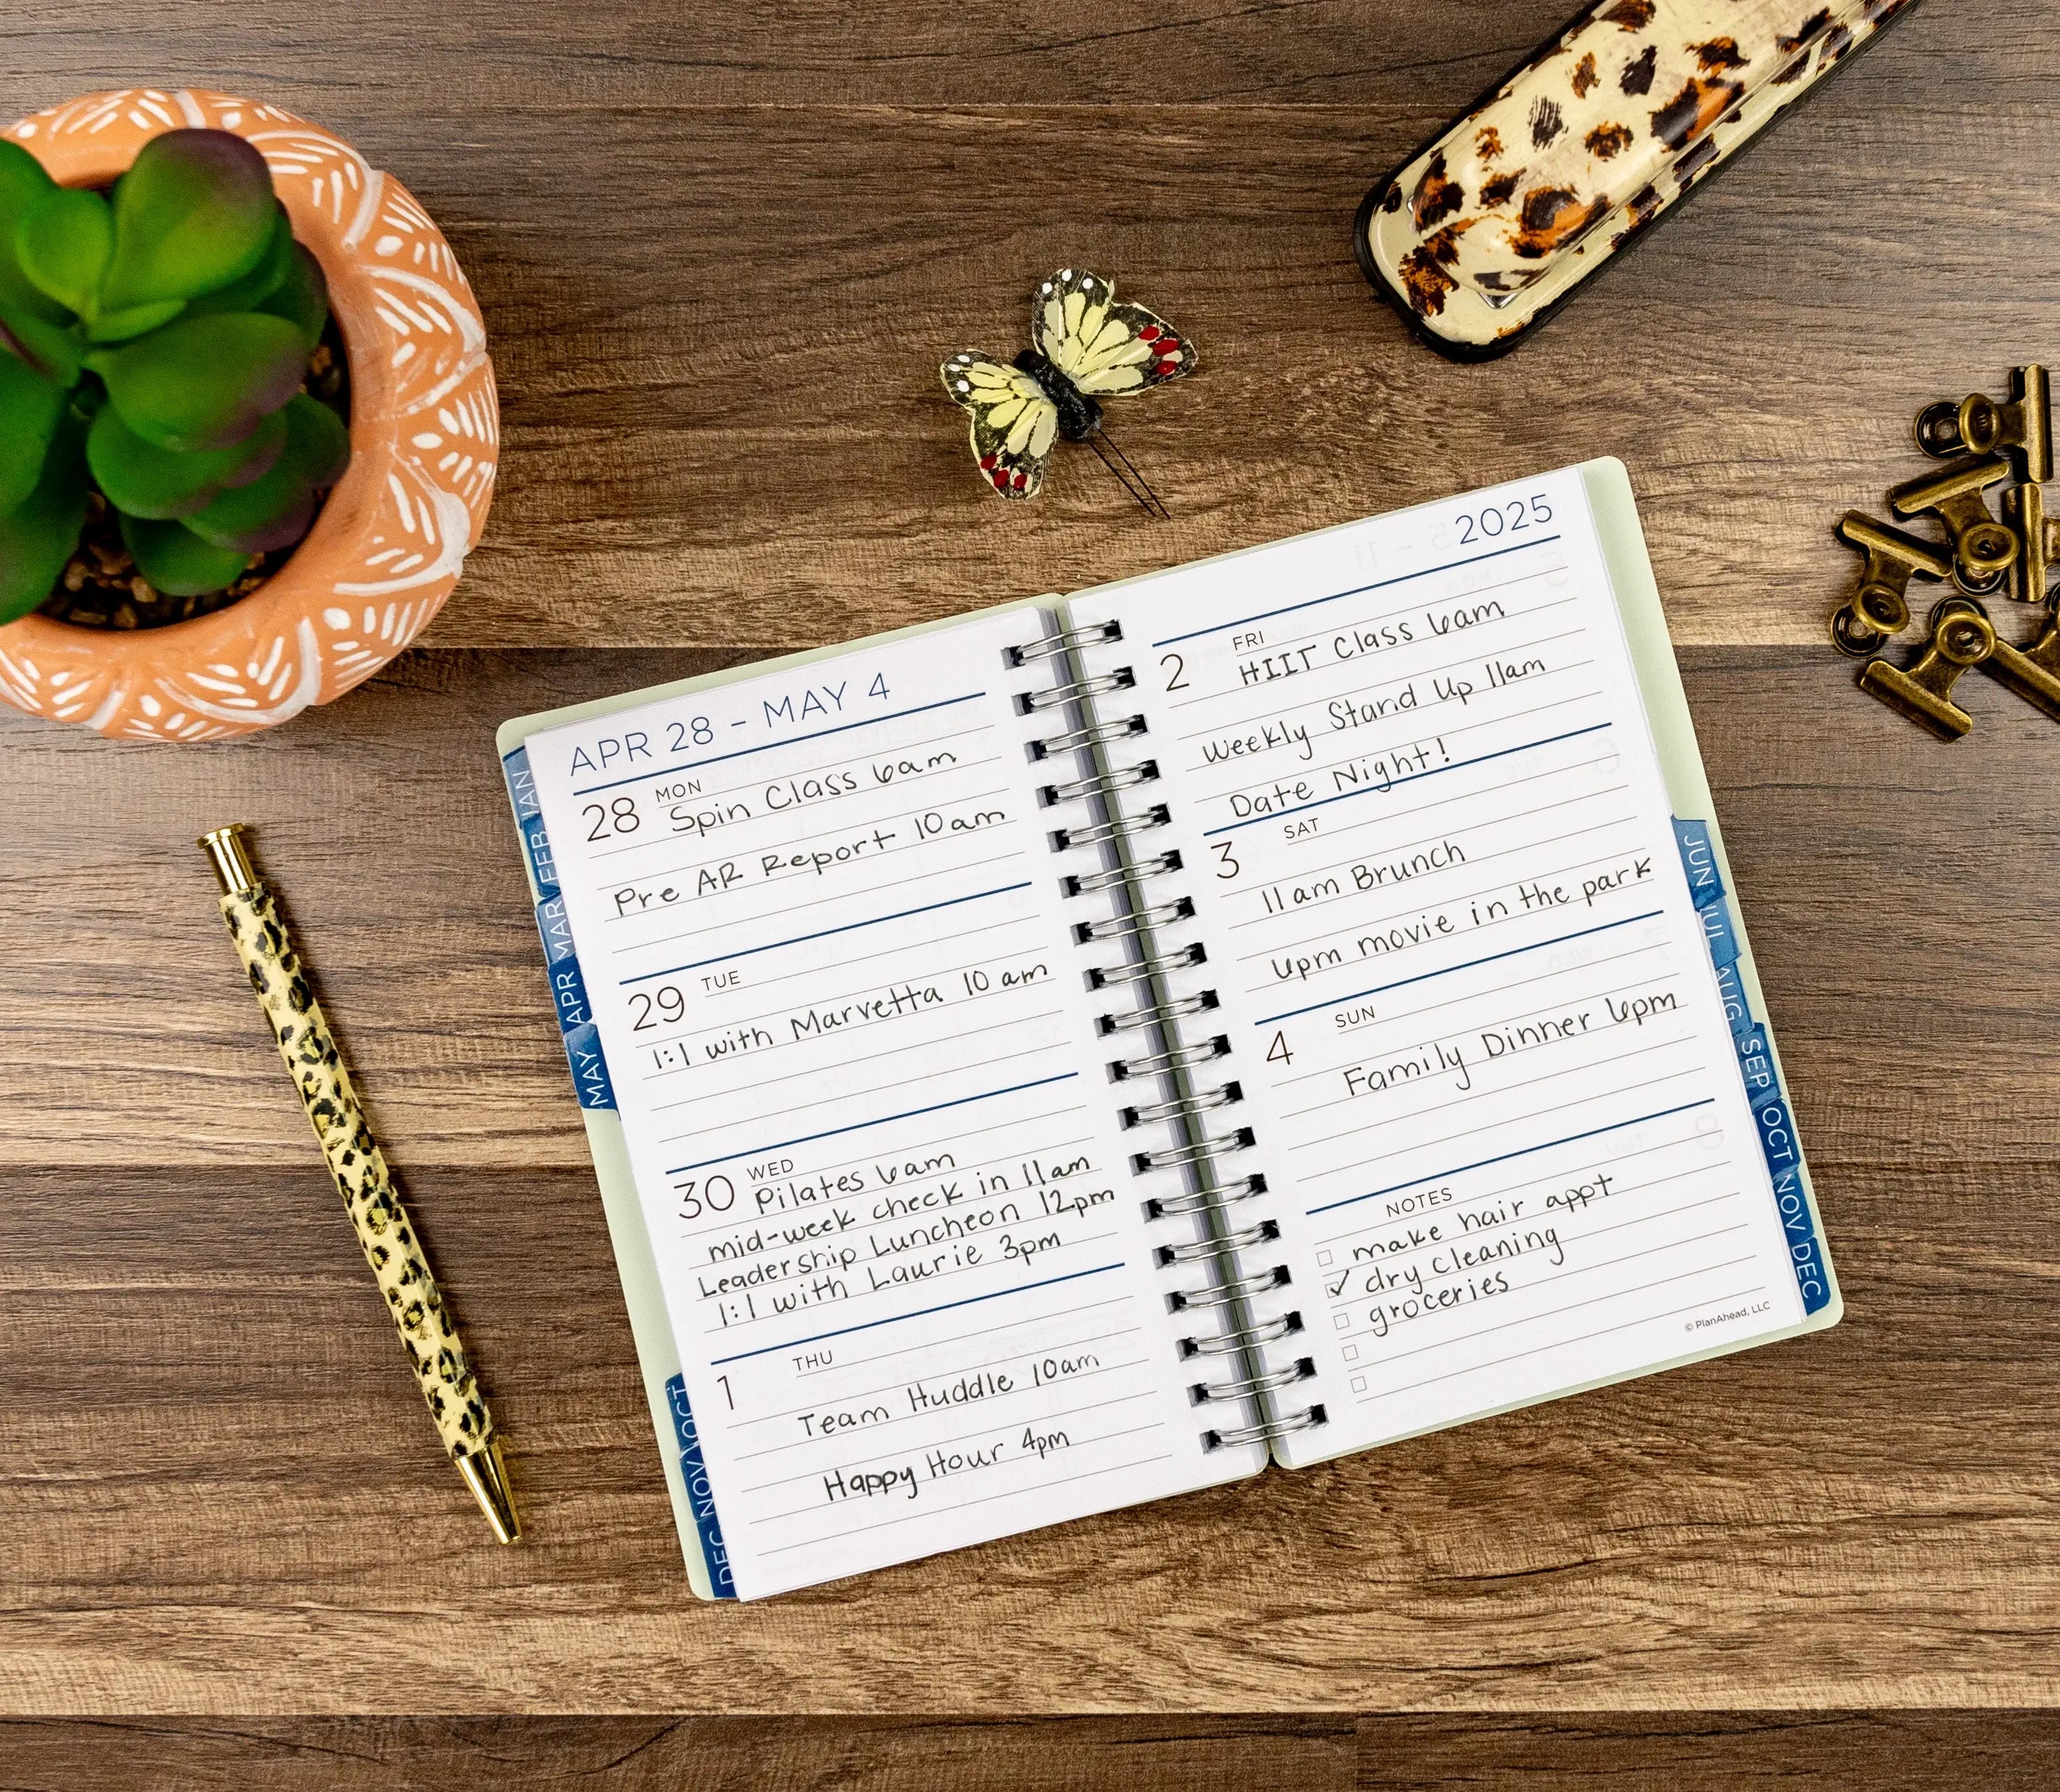 APR 28 - MAY 4
MON
28 Spin Class 6am
Pre AR Report 10am
TUE
29
1:1 with Marvetta 10 am
WED
30 Pilates 6am
mid-week check in 11am
Leadership Luncheon 12pm
1:1 with Laurie 3pm
THU
1
Team Huddle 10am
Happy Hour 4pm
2025
FRI
2 HIIT Class 6am
Weekly Stand Up 11am
Date Night!
SAT
3
11am Brunch
6pm movie in the park
SUN
4
Family Dinner 6pm
NOTES
make hair appt
✓ dry cleaning
groceries
© PlanAhead, LLC
JAN
FEB
MAR
APR
MAY
OCT
NOV
DEC
JUN
JUL
AUG
SEP
OCT
NOV
DEC